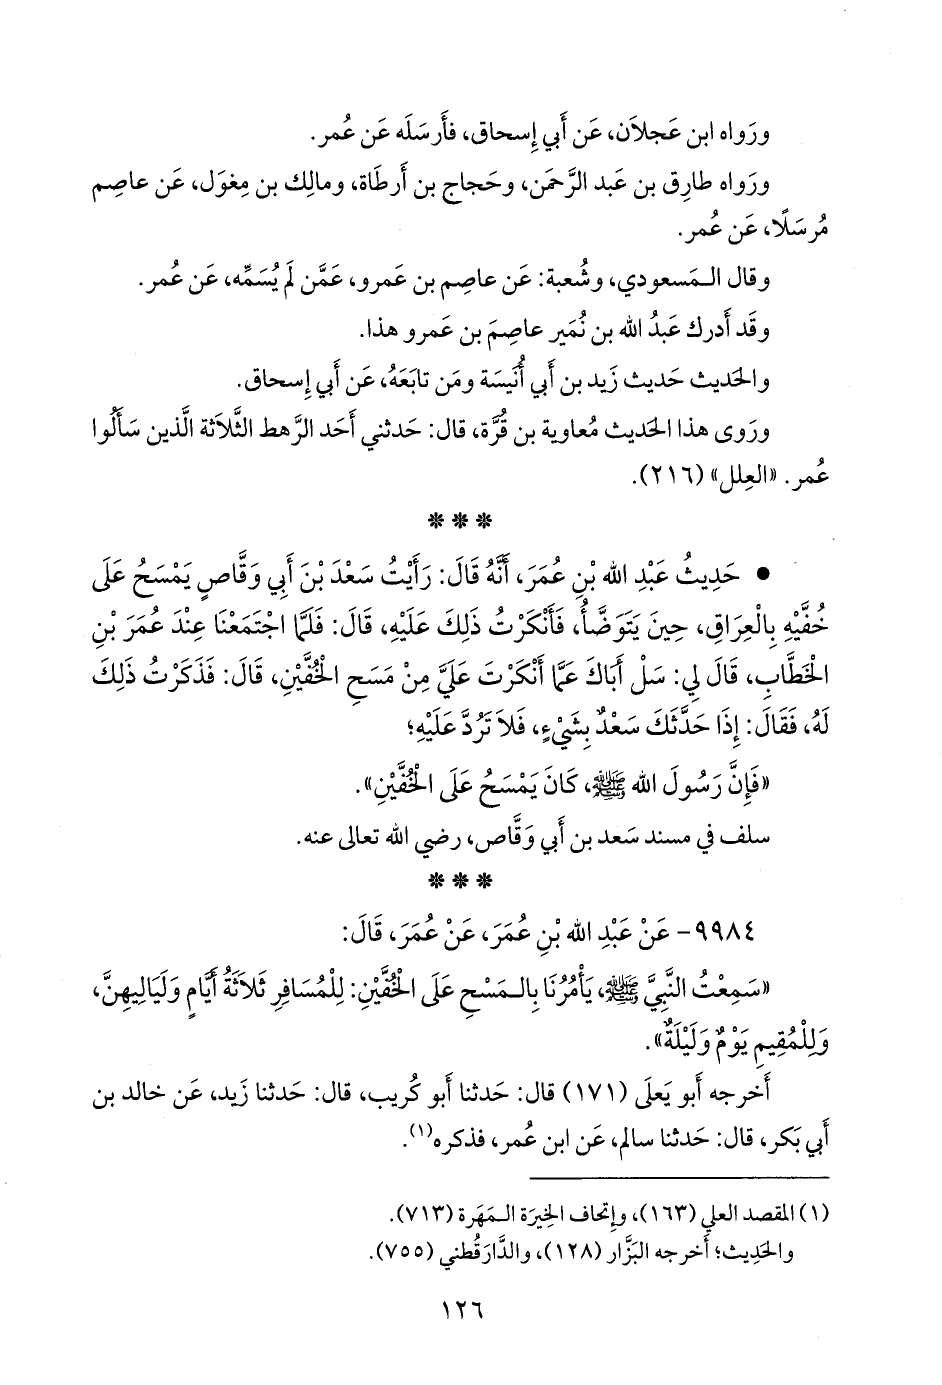 ورَواه ابن عَجلاَن، عَن أَبي إِسحاق، فأَرسَلَه عَن عُمر.
ورَواه طارِق بن عَبد الرَّحمَن، وحَجاج بن أَرطَاة، ومالِك بن مِغوَل، عَن عاصِم
مُرسَلًا، عَن عُمر.
وقال الـمَسعودي، وشُعبة: عَن عاصِم بن عَمرو، عَمَّن لَم يُسَمِّه، عَن عُمر.
وقَد أَدرك عَبدُ الله بن نُمَير عاصِمَ بن عَمرو هذا.
والحَديث حَديث زَيد بن أَبي أُنَيسَة ومَن تابَعَهُ، عَن أَبي إِسحاق.
ورَوى هذا الحَديث مُعاوية بن قُرَّة، قال: حَدثني أَحَد الرَّهط الثَّلاَثة الَّذين سَأَلُوا
عُمر. «العِلل» (٢١٦).
* * *
• حَدِيثُ عَبْدِ الله بْنِ عُمَرَ، أَنَّهُ قَالَ: رَأَيْتُ سَعْدَ بْنَ أَبِي وَقَّاصٍ يَمْسَحُ عَلَى
خُفَّيْهِ بِالْعِرَاقِ، حِينَ يَتَوَضَّأُ، فَأَنْكَرْتُ ذَلِكَ عَلَيْهِ، قَالَ: فَلَمَّا اجْتَمَعْنَا عِنْدَ عُمَرَ بْنِ
الْخَطَّابِ، قَالَ لِي: سَلْ أَبَاكَ عَمَّا أَنْكَرْتَ عَلَيَّ مِنْ مَسْحِ الْخُفَّيْنِ، قَالَ: فَذَكَرْتُ ذَلِكَ
لَهُ، فَقَالَ: إِذَا حَدَّثَكَ سَعْدٌ بِشَيْءٍ، فَلاَ تَرُدَّ عَلَيْهِ؛
«فَإِنَّ رَسُولَ الله ﷺ، كَانَ يَمْسَحُ عَلَى الْخُفَّيْنِ».
سلف في مسند سَعد بن أَبي وَقَّاص، رضي الله تعالى عنه.
* * *
٩٩٨٤- عَنْ عَبْدِ الله بْنِ عُمَرَ، عَنْ عُمَرَ، قَالَ:
«سَمِعْتُ النَّبِيَّ ﷺ، يَأْمُرُنَا بِالـمَسْحِ عَلَى الْخُفَّيْنِ: لِلْمُسَافِرِ ثَلاَثَةُ أَيَّامٍ وَلَيَالِيهِنَّ،
وَلِلْمُقِيمِ يَوْمٌ وَلَيْلَةٌ».
أَخرجه أَبو يَعلَى (١٧١) قال: حَدثنا أَبو كُريب، قال: حَدثنا زَيد، عَن خالد بن
أَبي بَكر، قال: حَدثنا سالم، عَن ابن عُمر، فذكره(١).
(١) المقصد العلي (١٦٣)، وإِتحاف الخِيرَة الـمَهَرة (٧١٣).
والحَدِيث؛ أَخرجه البَزَّار (١٢٨)، والدَّارَقُطني (٧٥٥).
١٢٦